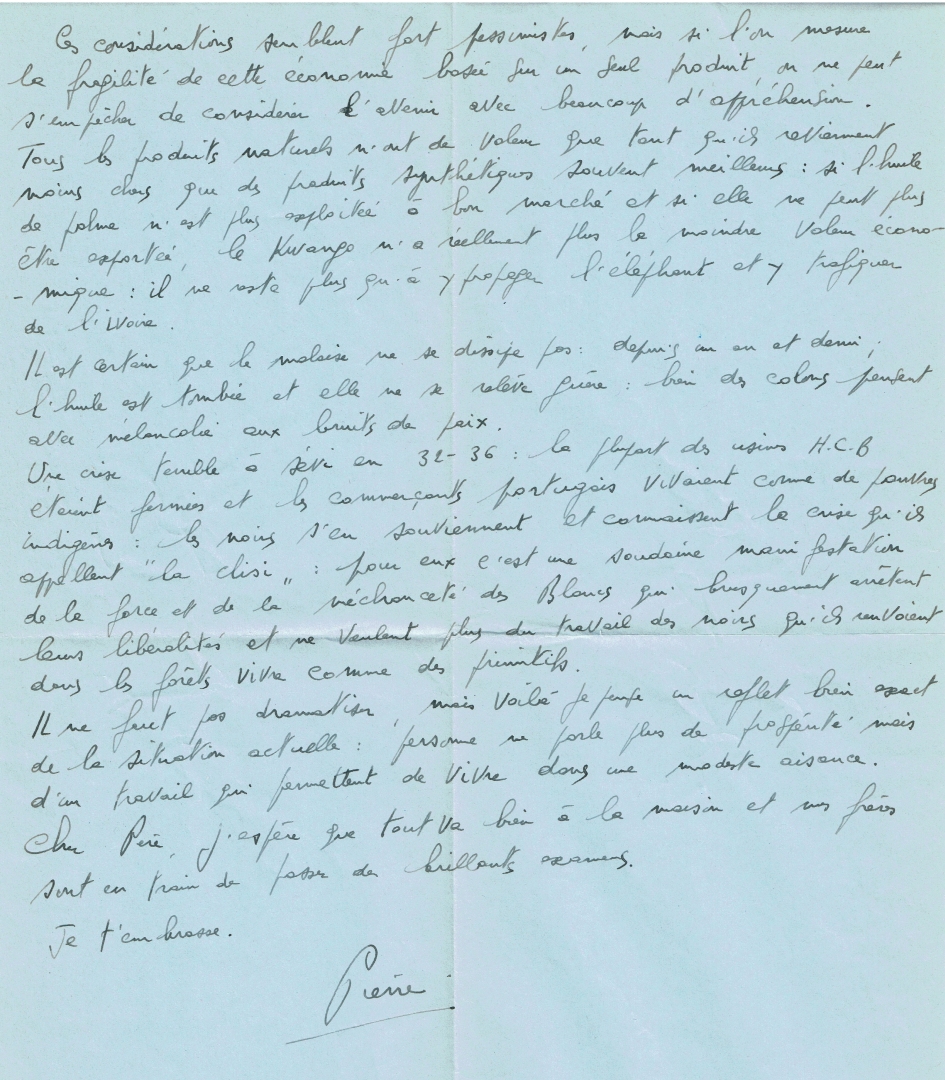 Ces considérations semblent fort pessimistes, mais si l'on mesure
la fragilité de cette économie basée sur un seul produit, on ne peut
s'empêcher de considérer l'avenir avec beaucoup d'appréhension.
Tous les produits naturels n'ont de valeur que tant qu'ils reviennent
moins chers que des produits synthétiques souvent meilleurs : si l'huile
de palme n'est plus exploitée à bon marché et si elle ne peut plus
être exportée, le Kwango n'a réellement plus la moindre valeur écono-
- mique : il ne reste plus qu'à y propager l'éléphant et y trafiquer
de l'ivoire.
Il est certain que le malaise ne se dissipe pas : depuis un an et demi,
l'huile est tombée et elle ne se relève guère : bien des colons pensent
avec mélancolie aux bruits de paix.
Une crise terrible a sévi en 32-36 : la plupart des usines H.C.B
étaient fermées et les commerçants portugais vivaient comme de pauvres
indigènes : les noirs s'en souviennent et connaissent la crise qu'ils
appellent "la clisi" : pour eux c'est une soudaine manifestation
de la force et de la méchanceté des Blancs qui brusquement arrêtent
leurs libéralités et ne veulent plus du travail des noirs qu'ils renvoient
dans les forêts vivre comme des primitifs.
Il ne faut pas dramatiser, mais voilà je pense un reflet bien exact
de la situation actuelle : personne ne parle plus de prospérité mais
d'un travail qui permettent de vivre dans une modeste aisance.
Cher Père, j'espère que tout va bien à la maison et mes frères
sont en train de passer des brillants examens.
Je t'embrasse.
Pierre